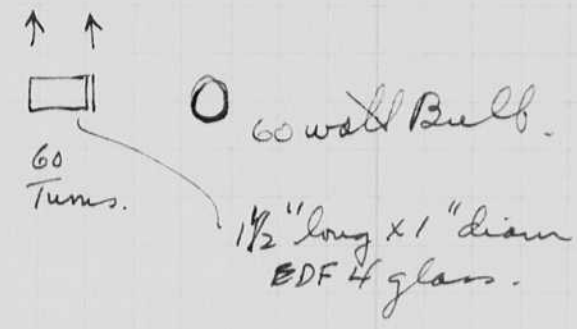 60 watt Bulb.
60
Turns.
1 1/2" long x 1" diam
EDF 4 glass.